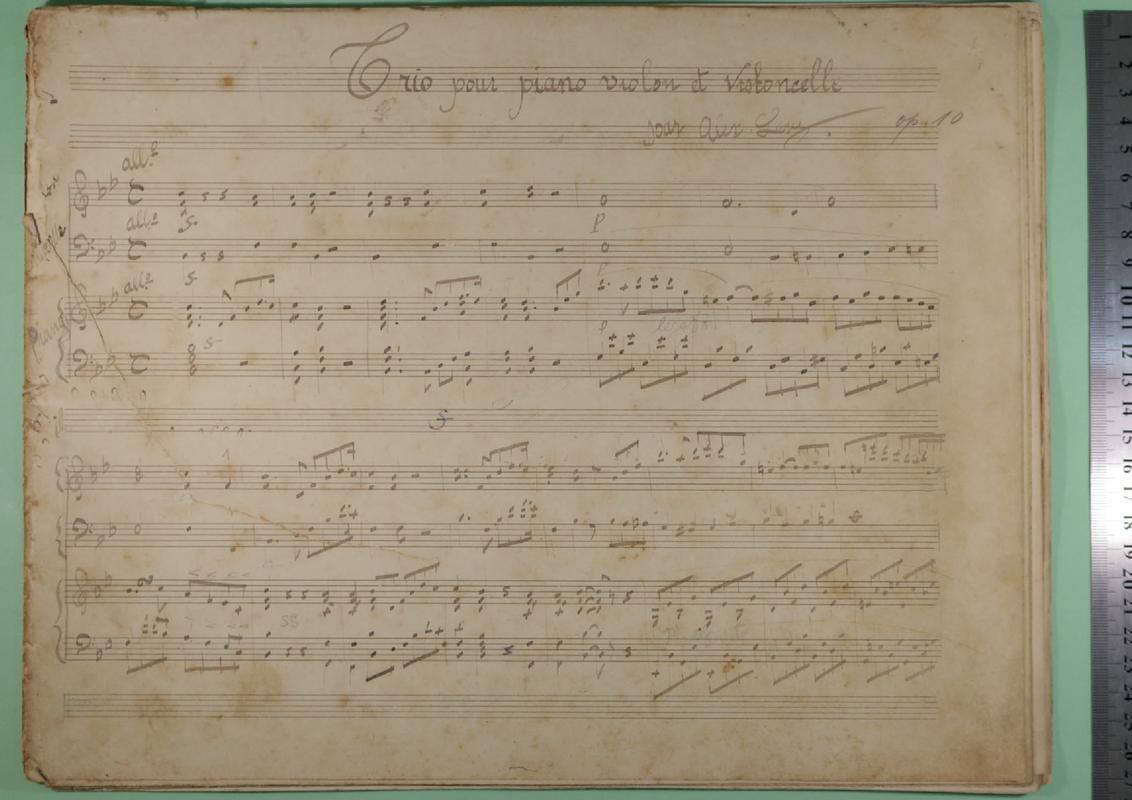 Trio pour piano violon et violoncelle
par Alex Levy. op. 10
all.o
all.o
all.o
Piano
p
p
p legato
1 2 3 4 5 6 7 8 9 10 11 12 13 14 15 16 17 18 19 20 21 22 23 24 25 26 27